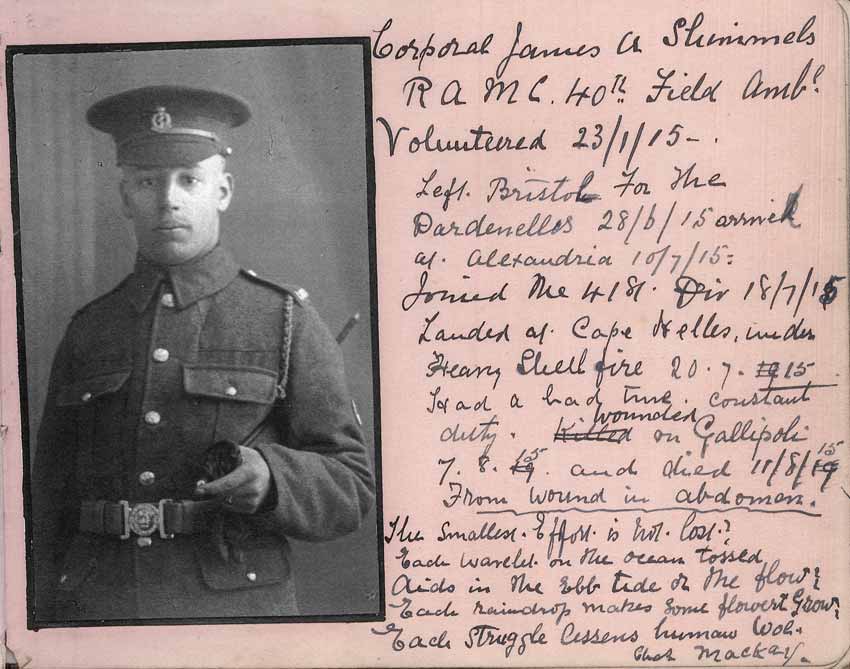 Corporal James A Shimmels
R A M C. 40th Field Ambe
Volunteered 23/1/15-.
Left. Bristol For the
Dardenelles 28/6/15 arrived
at. Alexandria 10/7/15-
Joined the 41st. Div 18/7/15
Landed at. Cape Helles, under
Heavy Shell fire 20.7.1915
Had a bad time. constant
duty. Killed wounded on Gallipoli
7.8.15 and died 11/8/15
From wound in abdomen.
The Smallest. Effort. is not. lost.
Each wavelet. on the ocean tossed
Aids in the Ebb tide or the flow.
Each raindrop makes some flowert Grow.
Each Struggle lessens human Woe.
Mackay.